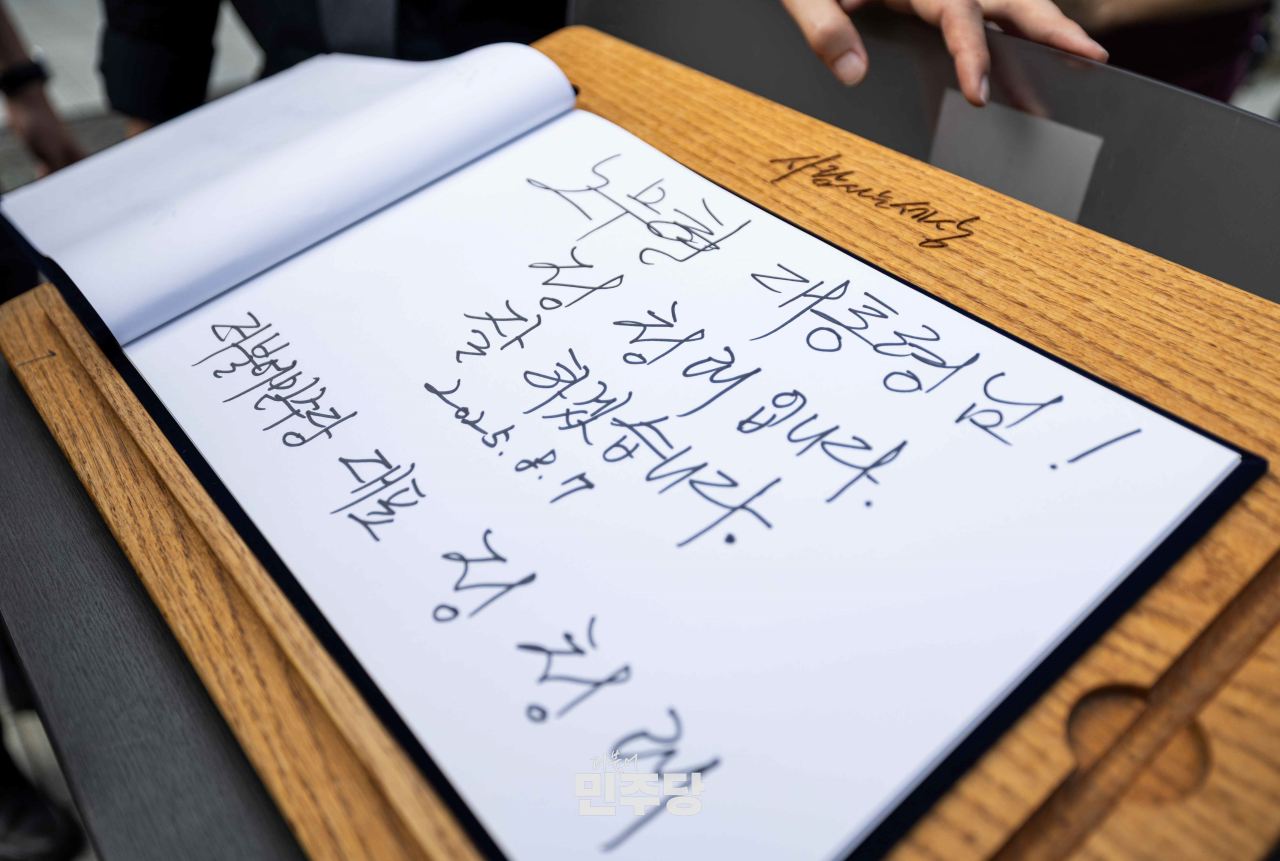 사람사는세상
노무현 대통령님!
정청래입니다.
잘 하겠습니다.
2025. 8. 7
더불어민주당 대표 정청래
더불어
민주당